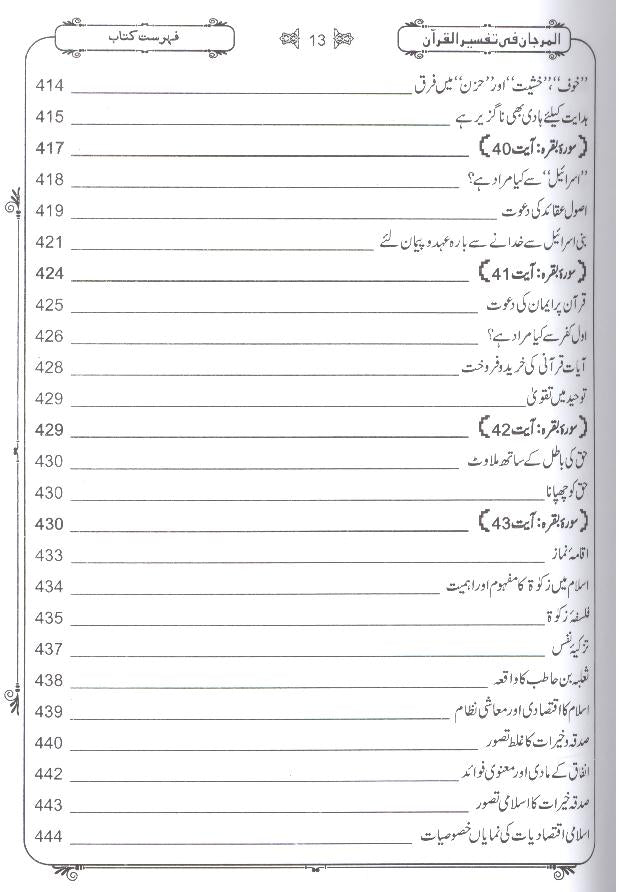 المرجان فی تفسیر القرآن 13 فہرست کتاب
"خوف"، "خشیت" اور "حزن" میں فرق 414
ہدایت کیلئے ہادی بھی ناگزیر ہے 415
﴿سورۂ بقرہ: آیت 40﴾ 417
"اسرائیل" سے کیا مراد ہے؟ 418
اصول عقائد کی دعوت 419
بنی اسرائیل سے خدا نے سے بارہ عہد و پیمان لئے 421
﴿سورۂ بقرہ: آیت 41﴾ 424
قرآن پر ایمان کی دعوت 425
اول کفر سے کیا مراد ہے؟ 426
آیات قرآنی کی خرید و فروخت 428
توحید میں تقویٰ 429
﴿سورۂ بقرہ: آیت 42﴾ 429
حق کی باطل کے ساتھ ملاوٹ 430
حق کو چھپانا 430
﴿سورۂ بقرہ: آیت 43﴾ 430
اقامۂ نماز 433
اسلام میں زکوٰۃ کا مفہوم اور اہمیت 434
فلسفۂ زکوٰۃ 435
تزکیۂ نفس 437
ثعلبہ بن حاطب کا واقعہ 438
اسلام کا اقتصادی اور معاشی نظام 439
صدقہ و خیرات کا غلط تصور 440
انفاق کے مادی اور معنوی فوائد 442
صدقہ خیرات کا اسلامی تصور 443
اسلامی اقتصادیات کی نمایاں خصوصیات 444